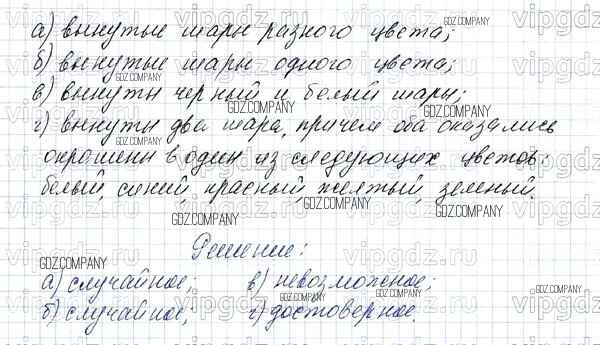 а) вынутые шары разного цвета;
б) вынутые шары одного цвета;
в) вынуты черный и белый шары;
г) вынуты два шара, причем оба оказались
окрашены в один из следующих цветов:
белый, синий, красный, желтый, зеленый.
Решение:
а) случайное; в) невозможное;
б) случайное; г) достоверное.